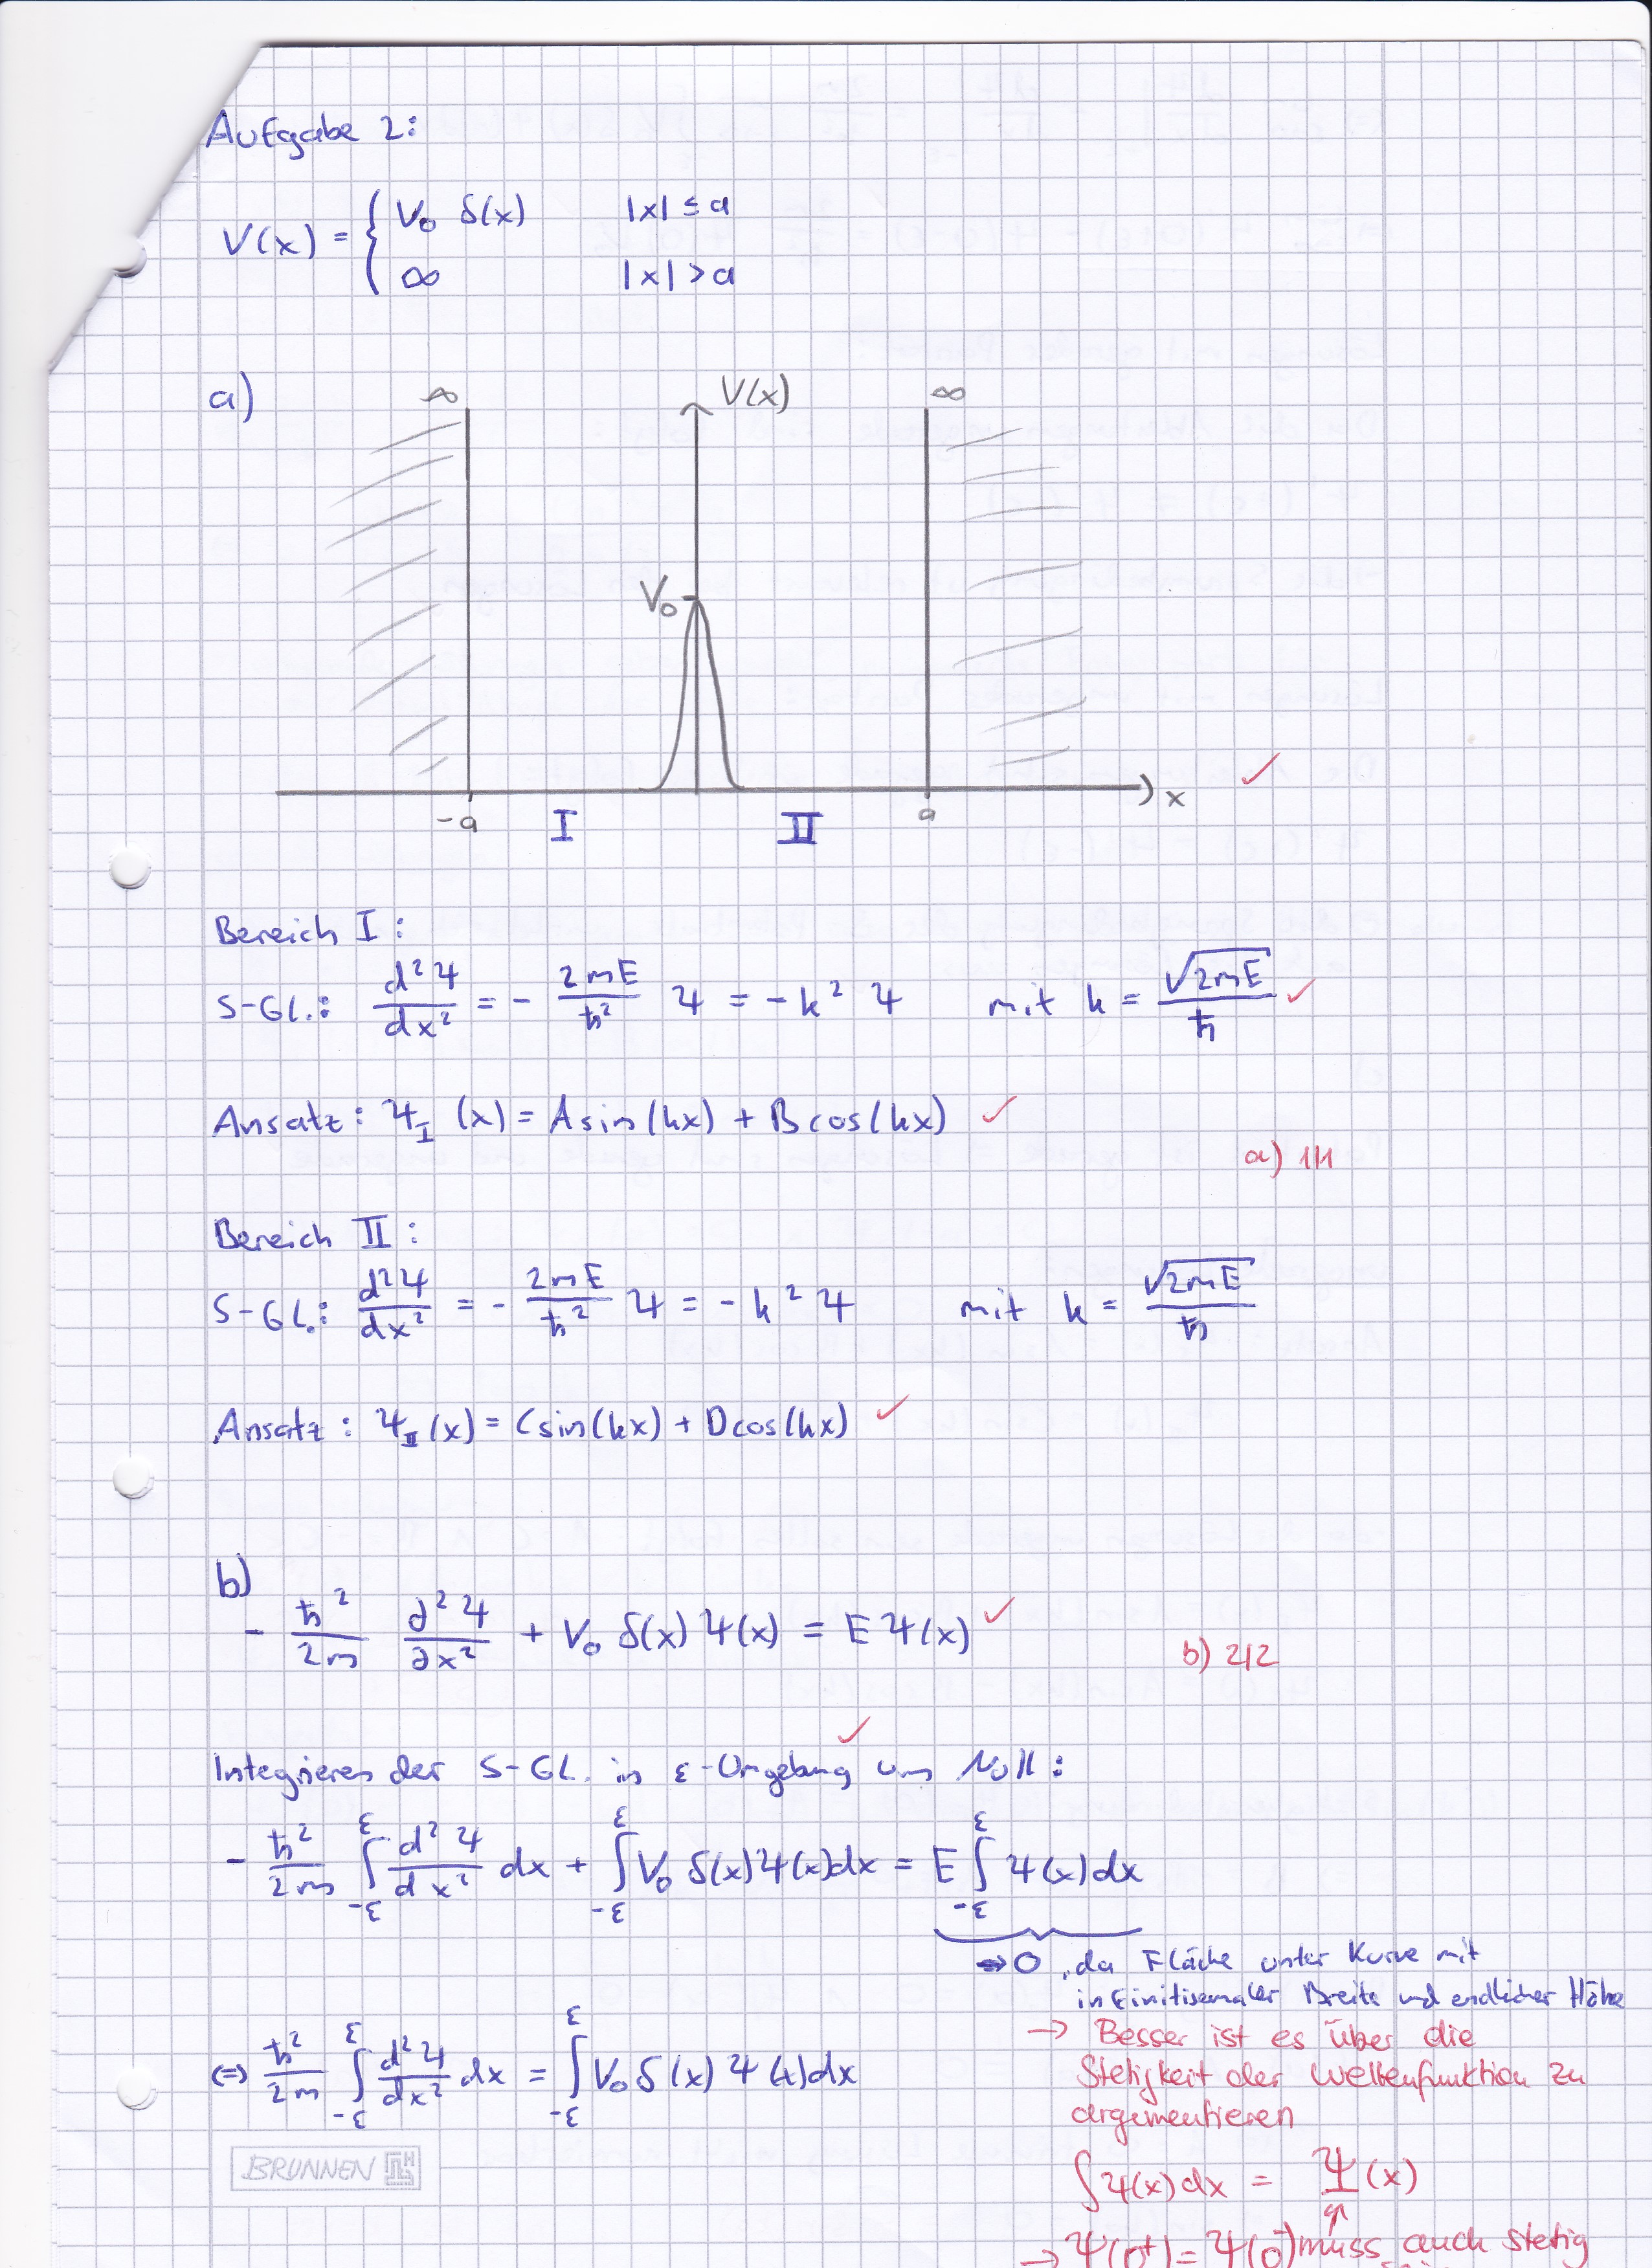 Aufgabe 2:
V(x) = { V₀ δ(x) |x| ≤ a
∞ |x| > a
a)
∞ V(x) ∞
V₀
-a I II a x
Bereich I:
S-GL.: d²ψ/dx² = - 2mE/ħ² ψ = -k² ψ mit k = √2mE/ħ ✓
Ansatz: ψ_I (x) = A sin(kx) + B cos(kx) ✓
a) 1/1
Bereich II:
S-GL.: d²ψ/dx² = - 2mE/ħ² ψ = -k² ψ mit k = √2mE/ħ
Ansatz: ψ_II (x) = C sin(kx) + D cos(kx) ✓
b)
- ħ²/2m ∂²ψ/∂x² + V₀ δ(x) ψ(x) = E ψ(x) ✓
b) 2/2
Integrieren der S-GL. in ε-Umgebung um Null:
- ħ²/2m ∫_{-ε}^{ε} d²ψ/dx² dx + ∫_{-ε}^{ε} V₀ δ(x) ψ(x) dx = E ∫_{-ε}^{ε} ψ(x) dx
→ 0, da Fläche unter Kurve mit
infinitisemaler Breite und endlicher Höhe
→ Besser ist es über die
Stetigkeit der Wellenfunktion zu
argumentieren
(=) ħ²/2m ∫_{-ε}^{ε} d²ψ/dx² dx = ∫_{-ε}^{ε} V₀ δ(x) ψ(x) dx
∫ψ(x)dx = Ψ(x)
→ Ψ(0⁺) = Ψ(0⁻) muss auch stetig
BRUNNEN